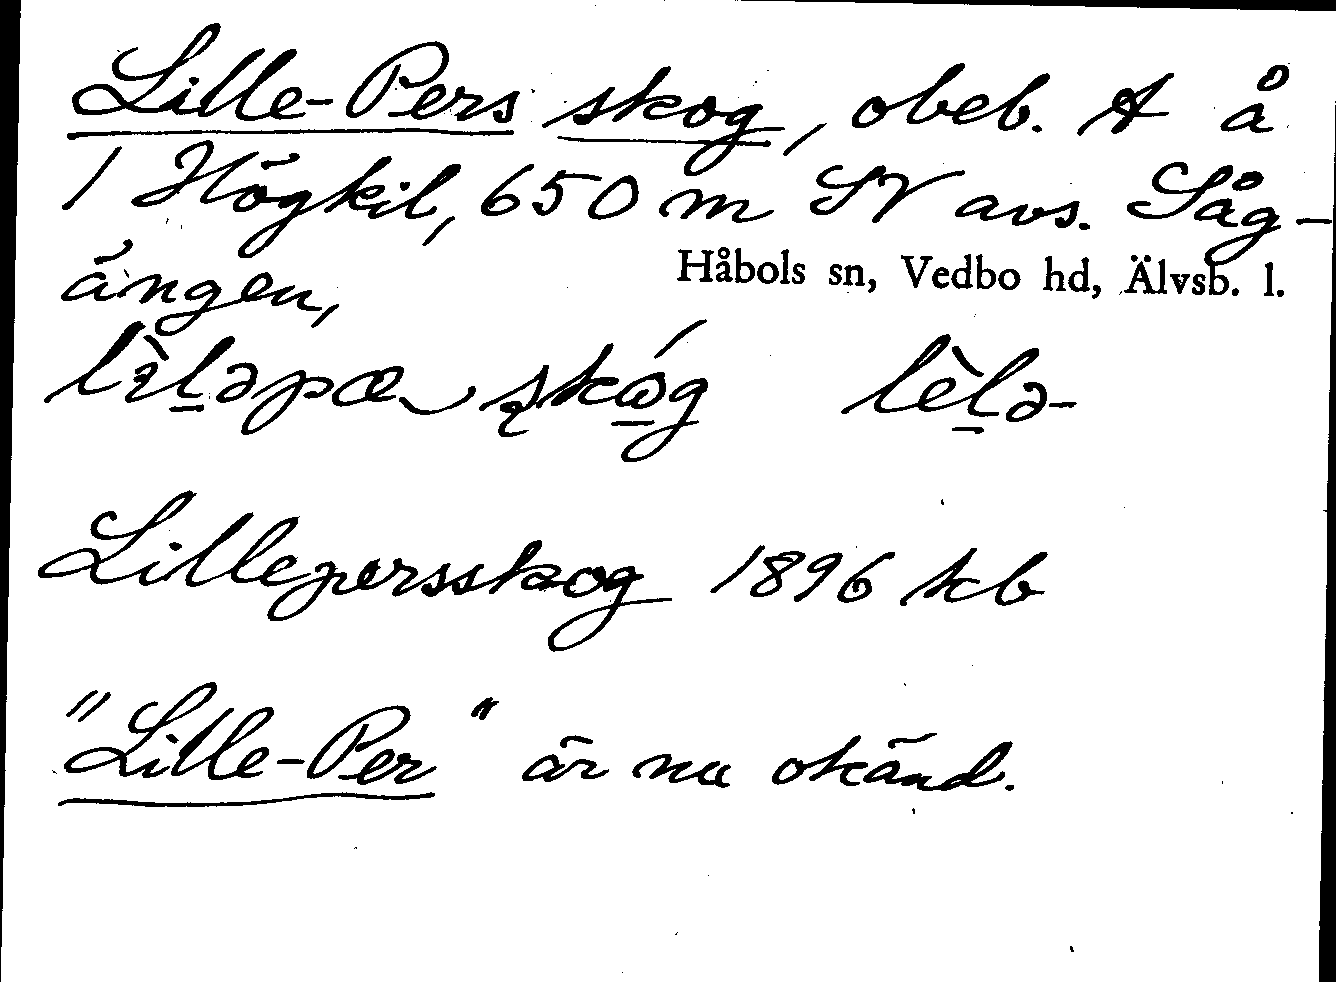 Lille-Pers skog, obeb. A å
1 Högkil, 650 m SV avs. Såg-
ängen,
Håbols sn, Vedbo hd, Älvsb. l.
lèlə-
Lillepersskog 1896 kb
"Lille-Per" är nu okänd.